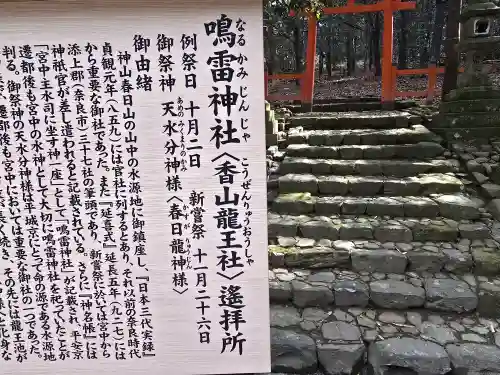 鳴雷神社〈香山龍王社〉遙拝所
なるかみじんじゃ こうぜんりゅうおうしゃ
例祭日 十月二日 新嘗祭 十一月二十六日
御祭神 天水分神様〈春日龍神様〉
御由緒
神山春日山の山中の水源地に御鎮座し、『日本三代実録』
貞観元年（八五九）には官社に列するとあり、それ以前の奈良時代
から重要な御社であった。また『延喜式』延長五年（九二七）には
添上郡（奈良市）三十七社の筆頭であり、新嘗祭には宮中から
神祇官が差し遣わされると記され、さらに「神名帳」には
「宮中に坐す神一座」として「鳴雷神社」が記載され、平安京
遷都後も宮中の水神として大切に鳴雷神社を祀っていたことが
判る。御祭神の天水分神様は平城京にとって命の源である水源地